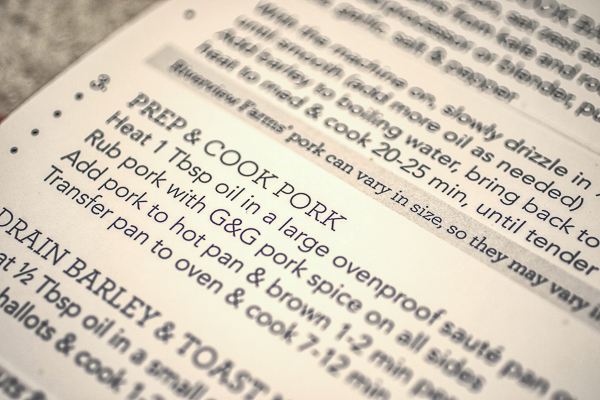 OOK BA
salt, zest
processor or blender, pu
from kale and ro
garlic, salt & pepper
With the machine on, slowly drizzle in
until smooth (add more oil as needed)
Add barley to boiling water, bring back to
heat to med & cook 20-25 min, until tender
Riverview Farms' pork can vary in size, so they may vary i
3.
PREP & COOK PORK
Heat 1 Tbsp oil in a large ovenproof sauté pan
Rub pork with G&G pork spice on all sides
Add pork to hot pan & brown 1-2 min per
Transfer pan to oven & cook 7-12 min
DRAIN BARLEY & TOAST
at ½ Tbsp oil in a small
hallots & cook 1-